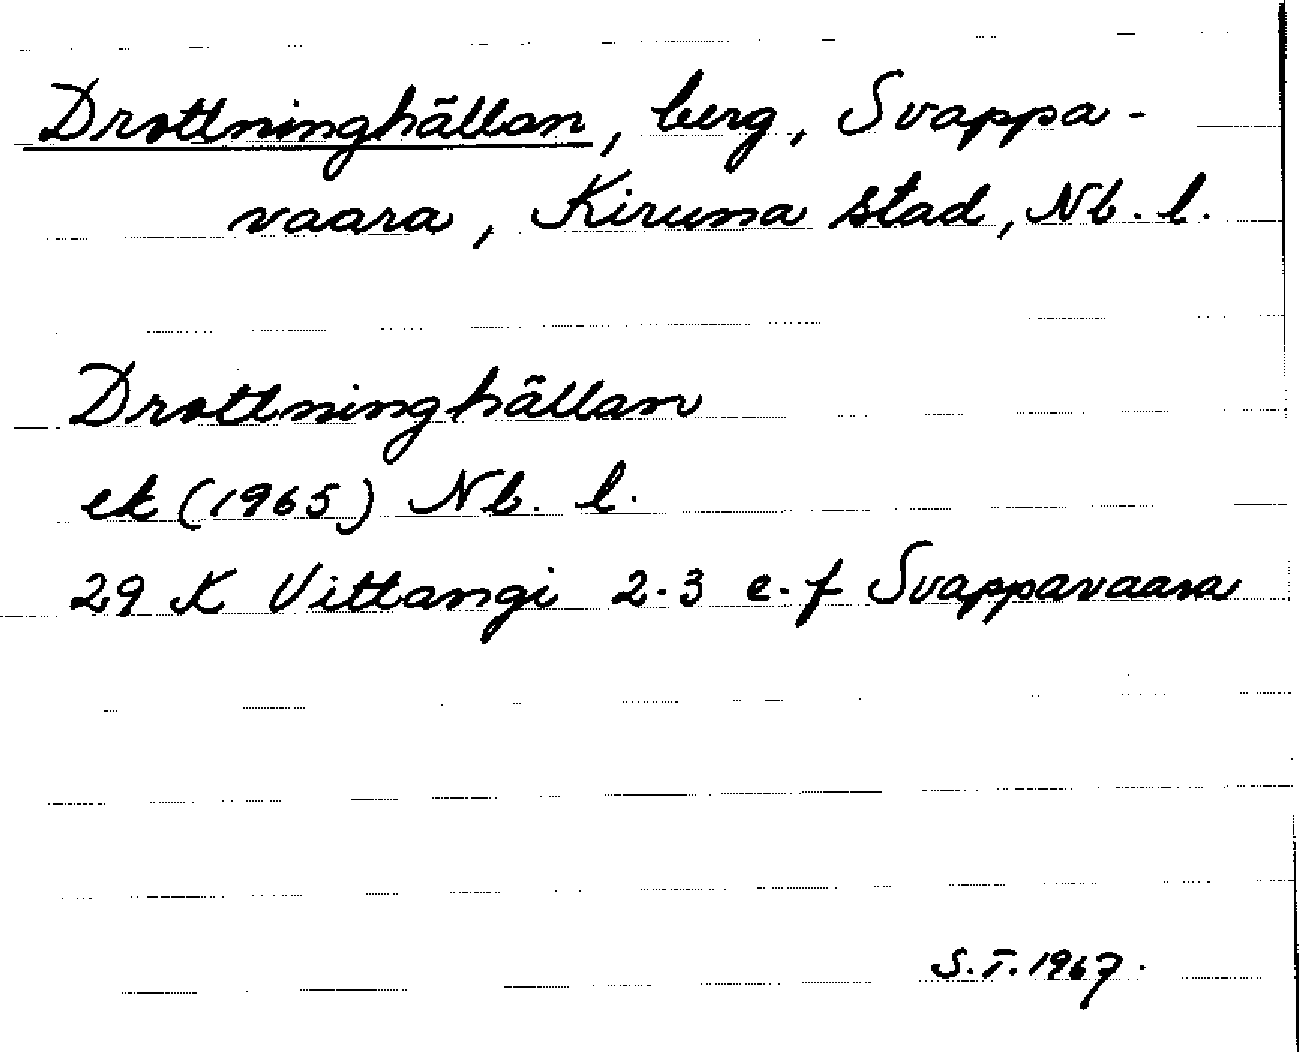 Drottninghällan, berg, Svappa-
vaara, Kiruna stad, Nb. l.
Drottninghällan
ek (1965) Nb. l.
29 K Vittangi 2-3 e-f Svappavaara
S.T. 1967.